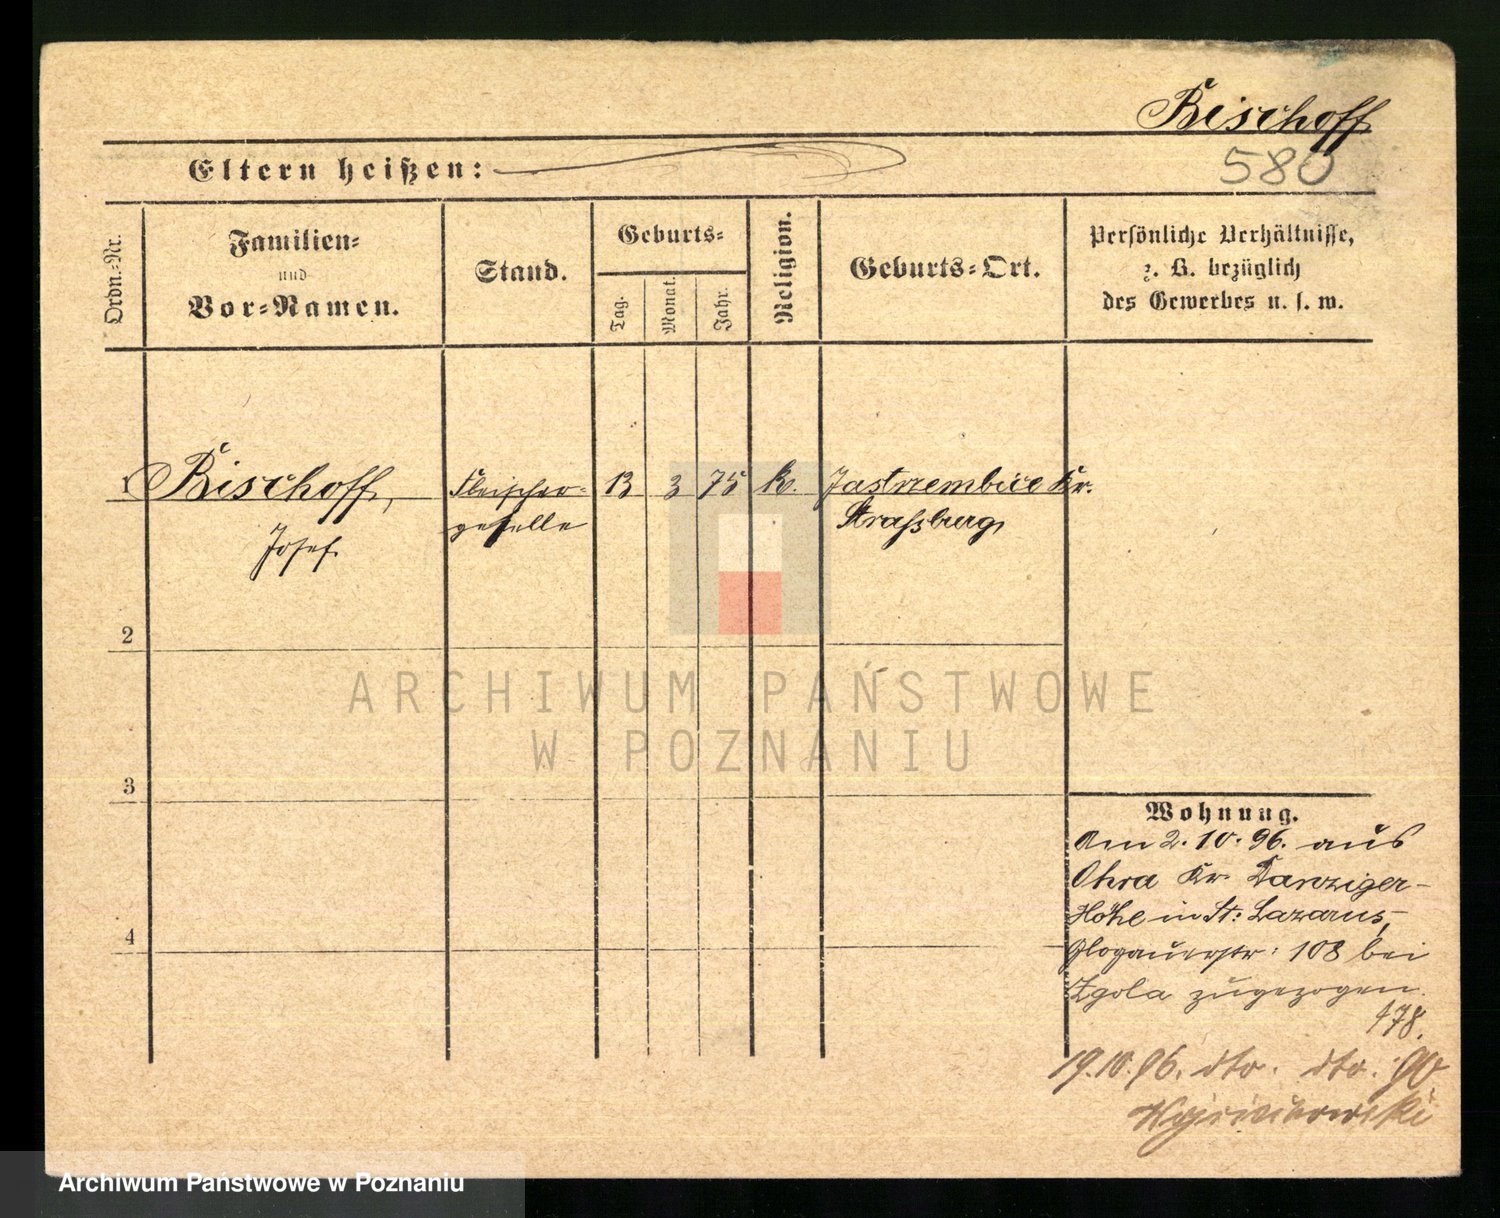 Bischoff
580
Eltern heißen:
Ordn.-Nr.
Familien-
und
Vor-Namen.
Stand.
Geburts-
Tag.
Monat.
Jahr.
Religion.
Geburts-Ort.
Persönliche Verhältnisse,
z. B. bezüglich
des Gewerbes u. s. w.
1 Bischoff, Fleischer- 13 3 75 k. Jastrzembice Kr.
Josef geselle Straßburg
2
3
4
Wohnung.
Am 2.10.96. aus
Ohra Kr. Danziger-
Höhe in St: Lazarus,
Glogauerstr: 108 bei
Zgola zugezogen.
178.
19.10.96. dto. dto. 90
ARCHIWUM PAŃSTWOWE
W POZNANIU
Archiwum Państwowe w Poznaniu